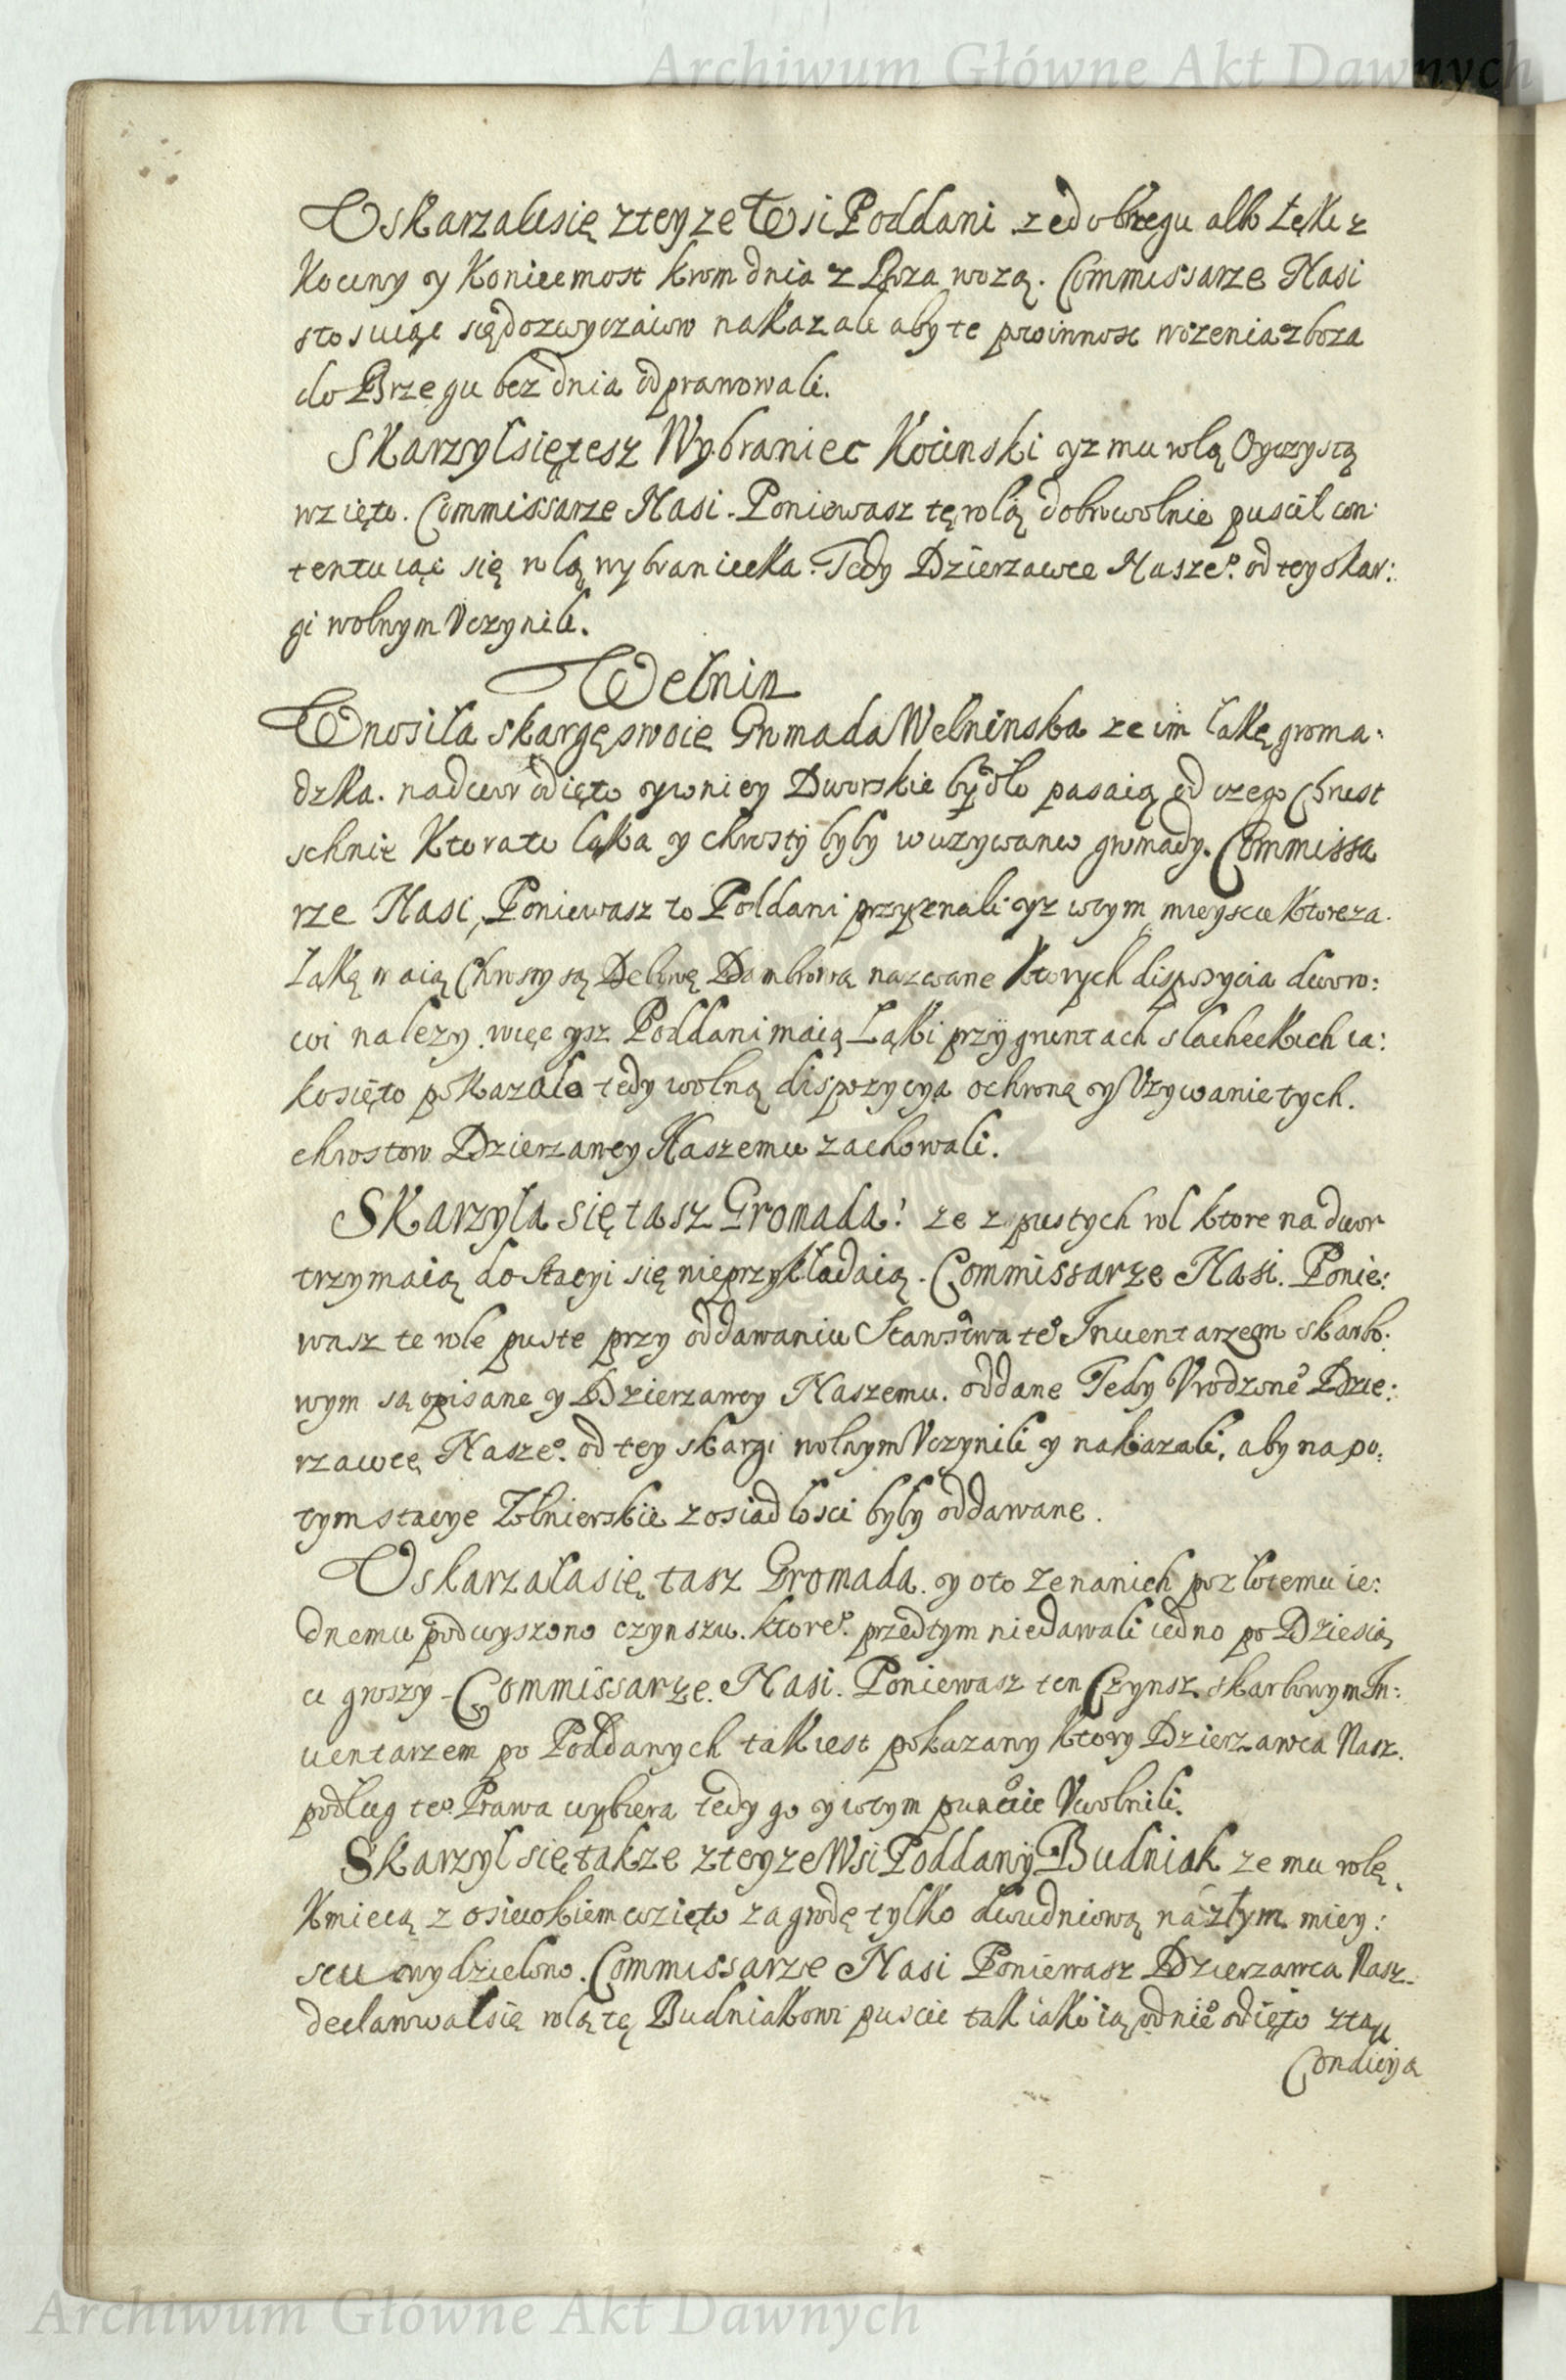 Archiwum Główne Akt Dawnych
Uskarzali się z teyze Wsi Poddani ze do brzegu albo Łęki z
Kociny y Koniecmost krom dnia z Zboza wozą. Commissarze Nasi
stosuiąc się do zwyczaiow nakazali aby te powinnosc wozenia zboza
do Brzegu bez dnia odprawowali.
Skarzyl się tesz Wybraniec Kocinski yz mu rolą Oyczystą
wzięto. Commissarze Nasi. Poniewasz tę rolą dobrowolnie puscił con:
tentuiąc się rolą wybraniecka. Tedy Dzierzawce Nasze⁰. od tey skar:
gi wolnym Vczynili.
Wełnin
Wnosiła skargę swoię Gromada Wełninska ze im łakę groma:
dzka. na dwor odięto y w niey Dworskie bydło pasaią od czego Chrust
schnie Ktorato łąka y chrosty były w uzywaniu gromady. Commissa
rze Nasi, Poniewasz to Poddani przyznali yz w tym mieyscu ktore za.
Łąkę maią Chrosty są Dębiną Dambrową nazwane ktorych dispozycia dworo:
wi nalezy. więc ysz Poddani maią Łąki przy gruntach slacheckich ia:
ko się to pokazało tedy wolną dispozycya ochroną y Vzywanie tych.
chrostow Dzierzawcy Naszemu zachowali.
Skarzyla się tasz Gromada! ze z pustych rol ktore na dwor
trzymaią do stacyi się nieprzykładaią. Commissarze Nasi. Ponie:
wasz te role puste przy oddawaniu Starostwa te⁰ Inuentarzem skarbo:
wym są opisane y Dzierzawcy Naszemu. oddane Tedy Vrodzone⁰ Dzie:
rzawcę Nasze⁰. od tey skargi wolnym Vczynili y nakazali, aby na po:
tym stacye Zołnierskie z osiadłosci były oddawane.
Uskarzała się tasz Gromada. y oto ze na nich po złotemu ie:
dnemu podwyszono czynszu. ktore⁰. przedtym niedawali iedno po Dziesią
ci groszy - Commissarze. Nasi. Poniewasz ten Czynsz skarbowym In:
uentarzem po Poddanych tak iest pokazany ktory Dzierzawca Nasz.
podług te⁰ Prawa wybiera tedy go y w tym puncie Vwolnili.
Skarzył się takze z teyze Wsi Poddany Budniak ze mu rolę
Kmiecą z osiewkiem wzięto zagrodę tylko dwudniową na złym miey:
scu wydzielono. Commissarze Nasi Poniewasz Dzierzawca Nasz.
declarował się rolą tę Budniakowi puscic tak iako ią od nie⁰ odięto z tą
Condicyą
Archiwum Główne Akt Dawnych